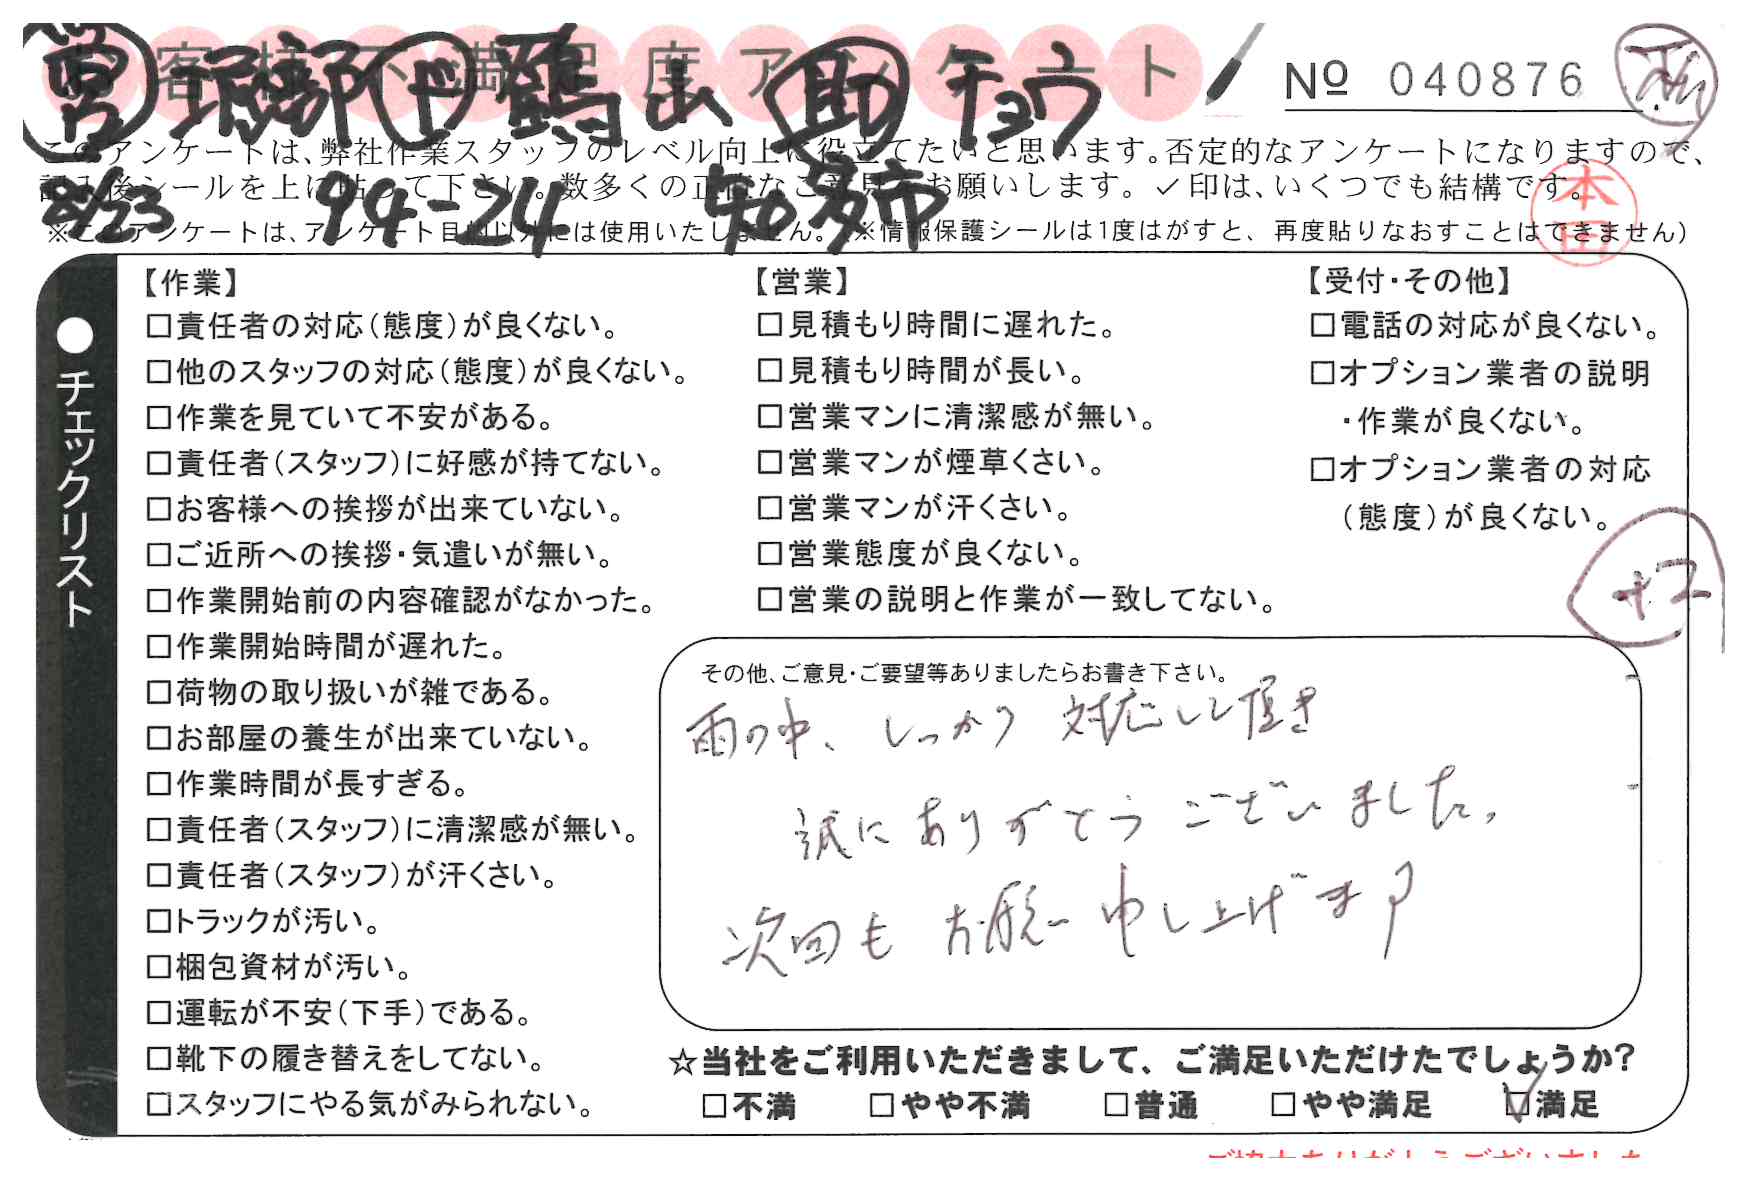 お客様不満足度アンケート
№ 040876
営 堀部 ド 鶴山 助 チョウ
このアンケートは、弊社作業スタッフのレベル向上に役立てたいと思います。否定的なアンケートになりますので、
記入後シールを上に貼って下さい。数多くの正直なご意見をお願いします。✓印は、いくつでも結構です。
本田
8/23 94-24 知多市
※このアンケートは、アンケート目的以外には使用いたしません。(※情報保護シールは1度はがすと、再度貼りなおすことはできません)
●チェックリスト
【作業】
□責任者の対応(態度)が良くない。
□他のスタッフの対応(態度)が良くない。
□作業を見ていて不安がある。
□責任者(スタッフ)に好感が持てない。
□お客様への挨拶が出来ていない。
□ご近所への挨拶・気遣いが無い。
□作業開始前の内容確認がなかった。
□作業開始時間が遅れた。
□荷物の取り扱いが雑である。
□お部屋の養生が出来ていない。
□作業時間が長すぎる。
□責任者(スタッフ)に清潔感が無い。
□責任者(スタッフ)が汗くさい。
□トラックが汚い。
□梱包資材が汚い。
□運転が不安(下手)である。
□靴下の履き替えをしてない。
□スタッフにやる気がみられない。
【営業】
□見積もり時間に遅れた。
□見積もり時間が長い。
□営業マンに清潔感が無い。
□営業マンが煙草くさい。
□営業マンが汗くさい。
□営業態度が良くない。
□営業の説明と作業が一致してない。
【受付・その他】
□電話の対応が良くない。
□オプション業者の説明
・作業が良くない。
□オプション業者の対応
(態度)が良くない。
+2
その他、ご意見・ご要望等ありましたらお書き下さい。
雨の中、しっかり対応して頂き
誠にありがとうございました。
次回もお願い申し上げます
☆当社をご利用いただきまして、ご満足いただけたでしょうか?
□不満 □やや不満 □普通 □やや満足 ☑満足
ご協力ありがとうございました